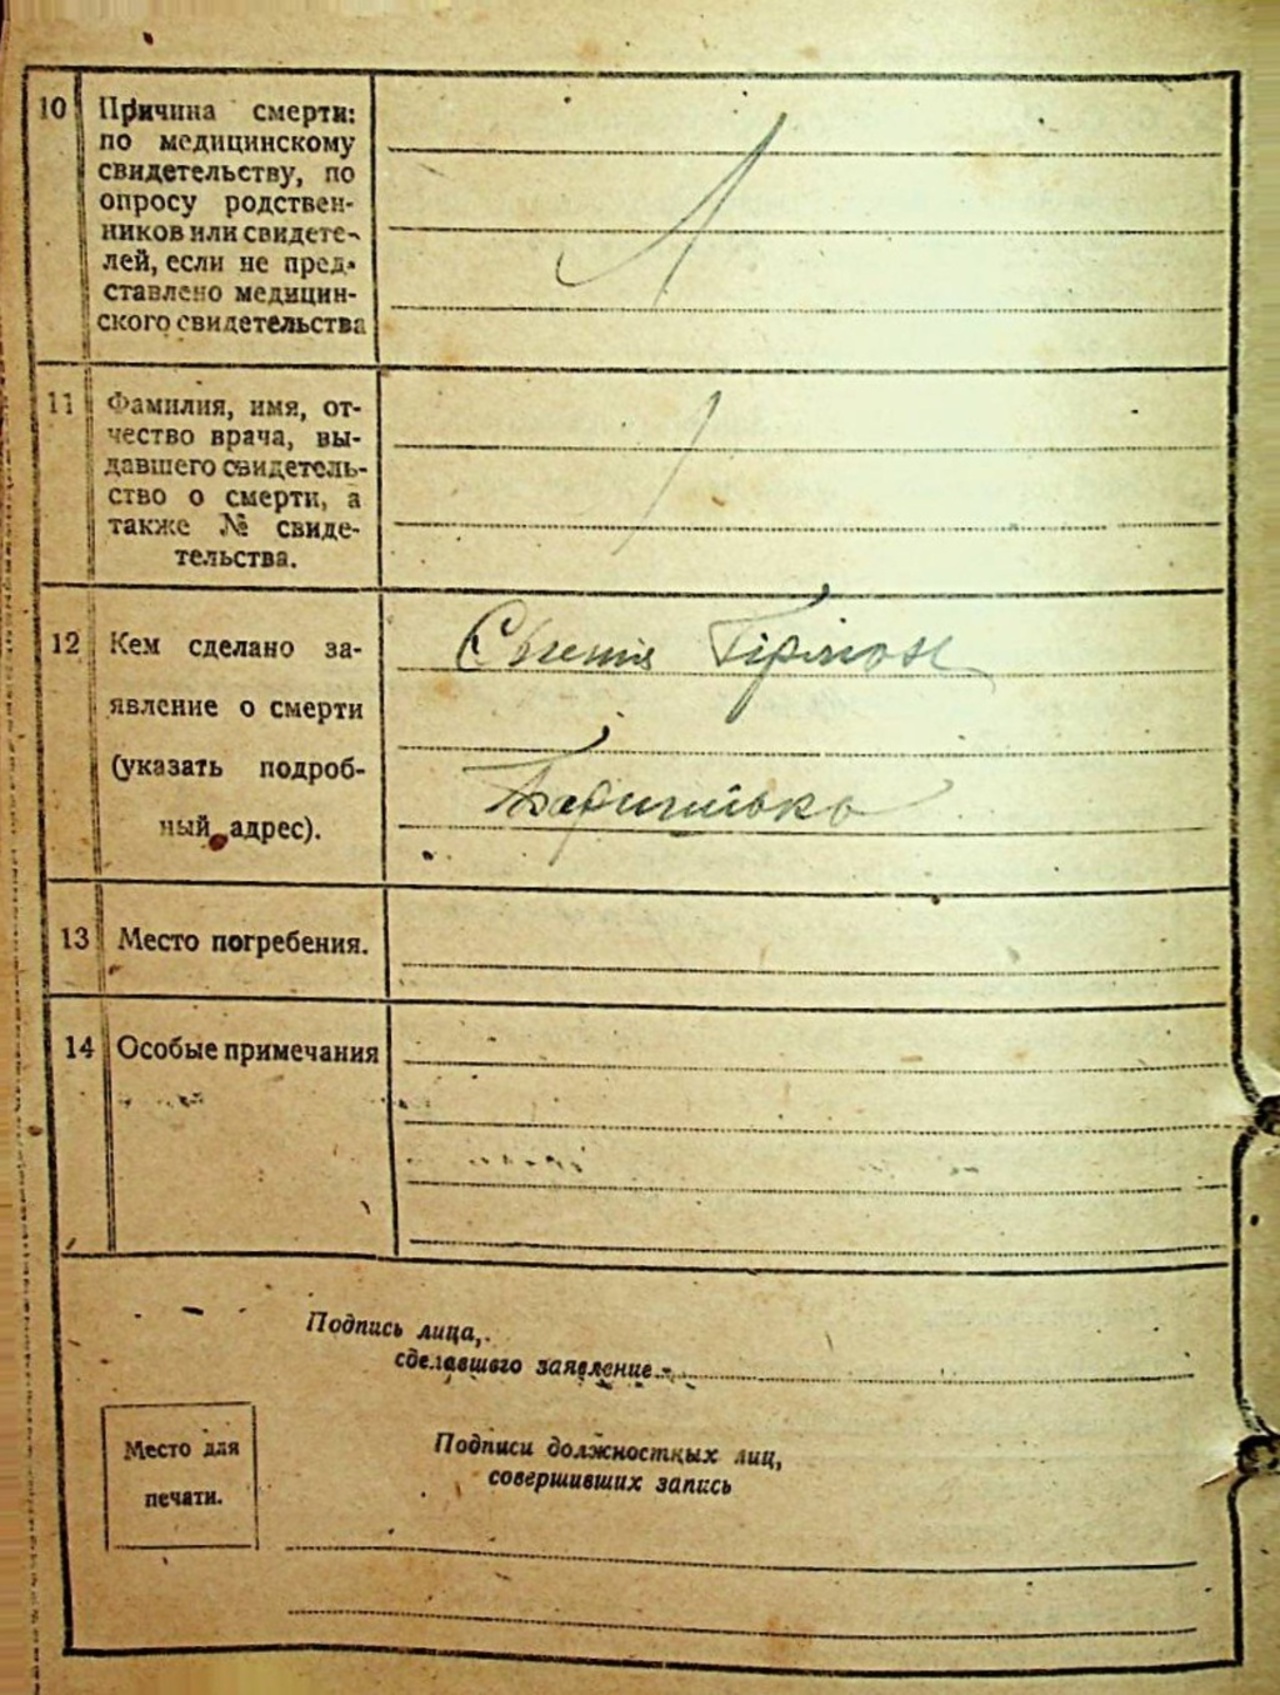 10 Причина смерти:
по медицинскому
свидетельству, по
опросу родствен-
ников или свидете-
лей, если не пред-
ставлено медицин-
ского свидетельства
11 Фамилия, имя, от-
чество врача, вы-
давшего свидетель-
ство о смерти, а
также № свиде-
тельства.
12 Кем сделано за-
явление о смерти
(указать подроб-
ный адрес).
13 Место погребения.
14 Особые примечания
Подпись лица,
сделавшего заявление
Место для
печати.
Подписи должностных лиц,
совершивших запись